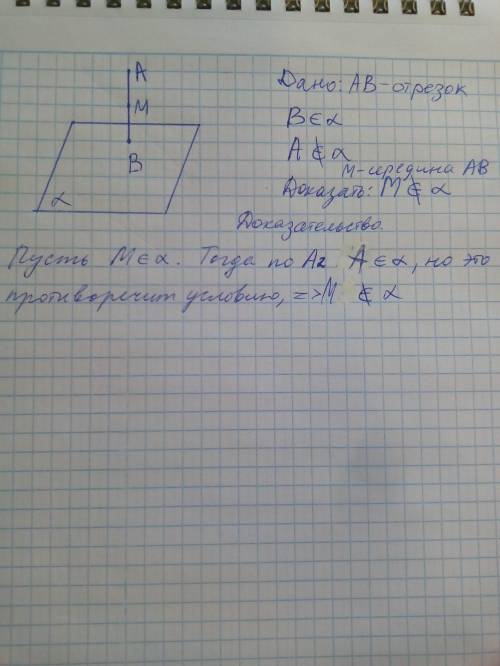 A
M
B
α
Дано: AB - отрезок
B∈α
A∉α
M-середина AB
Доказать: M∉α
Доказательство.
Пусть M∈α. Тогда по A2 A∈α, но это
противоречит условию, => M ∉ α